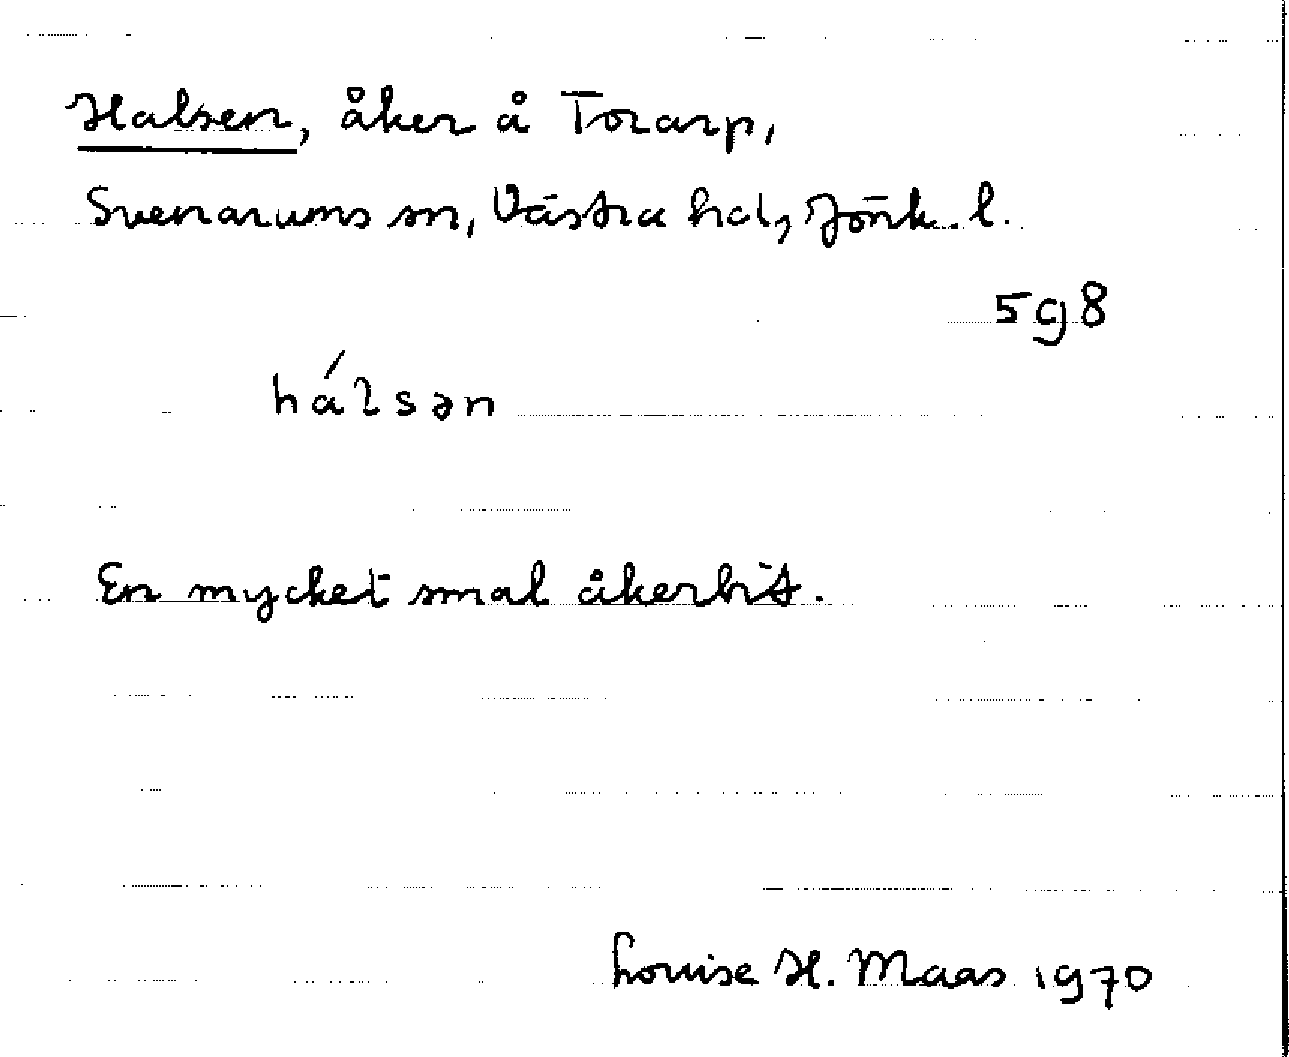 Halsen, åker å Torarp,
Svenarums sn, Västra hd, Jönk. l.
598
hálsən
En mycket smal åkerbit.
Louise H. Maas 1970